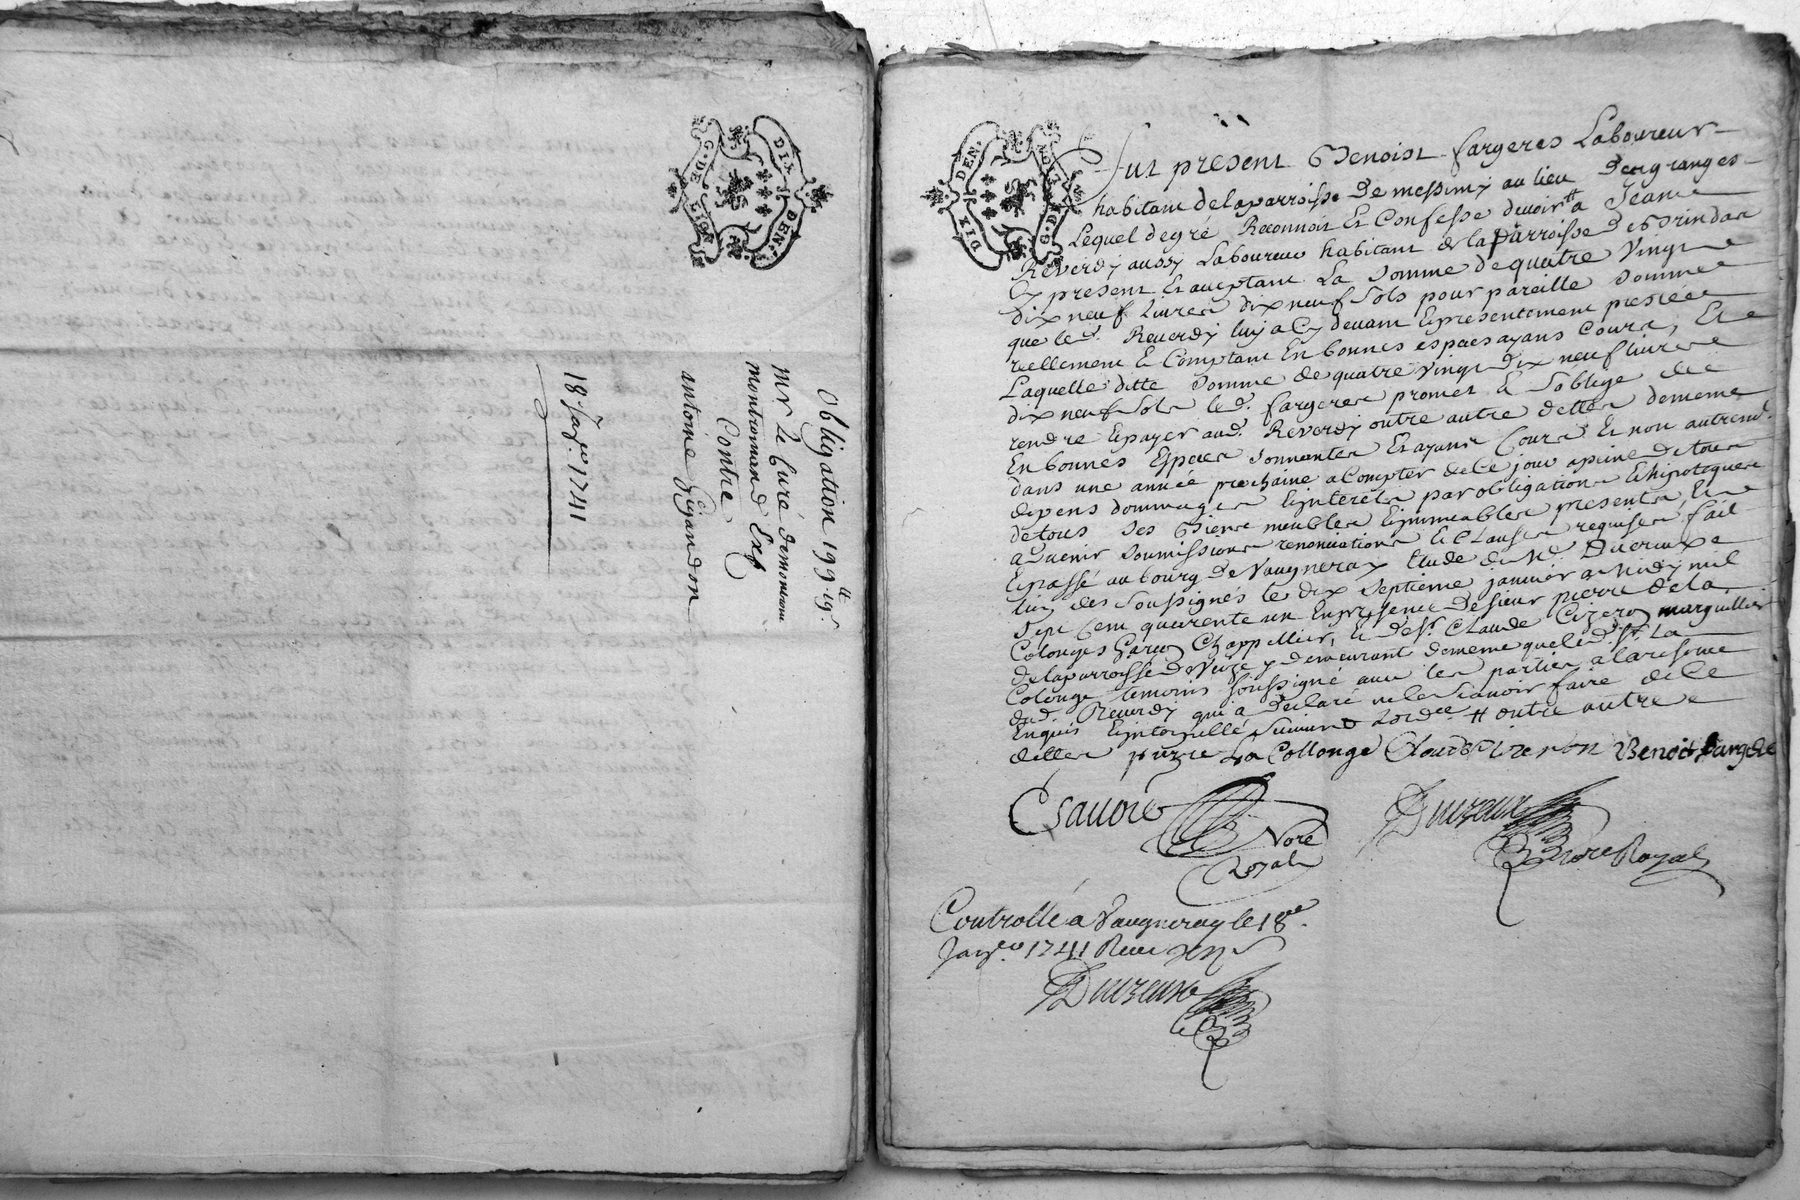 G. DE LION
DIX DEN.
Obligation 199 lt 19 s.
Mr le Curé de montromand
montromand Exp
Contre
antoine
18e Janv.er 1741
DIX DEN.
G. DE LION
fut present Benoist fargeres Laboureur
habitant de la parroisse De messimy au lieu Des granges
Lequel de gré Reconnoit Et Confesse devoir a Jean
Reverdy aussy Laboureur habitant de la parroisse De Brindas
Cy present Et acceptant La somme de quatre Vingt
dix neuf Livres dix neuf sols pour pareille somme
que led. Reverdy luy a Cy devant Et presentement prestée
reellement Et Comptant En bonnes especes ayans Cours, Et
Laquelle ditte somme de quatre vingt Dix neuf livres
dix neuf sols led. fargeres promet Et s'oblige de
rendre Et payer aud. Reverdy outre autre dettes de meme
En bonnes Especes sonnantes Et ayans Cours Et non autremt.
dans une année prochaine a Compter de Ce jour a peine De tous
depens dommages Et interets par obligation Et hipoteque
de tous ses Biens meubles Et immeubles presents, Et
a venir soumissions renonciations Et Clauses requises fait
Et passé au bourg De Vaugneray Etude de Me. Duvreux
l'un des soussignés le dix septieme janvier a midy mil
sept Cent quarente un En presence De sieur pierre De la
Colonges Garçon Chappellier, Et De Sr. Claude Cizeron marguillier
de la parroisse D'Veize y demeurant de meme que led. Sr. La
Colonge temoins soussigné avec les parties a la reserve
dud. Reverdy qui a Declaré ne le scavoir faire de Ce
Enquis Et interpellé suivant Lord.ce # outre autre
dettes pierre La Collonge Claude Cizeron Benoit fargere
Nore
Royal
Nore Royal
Controllé a Vaugneray le 18e
Janv.er 1741 Receu